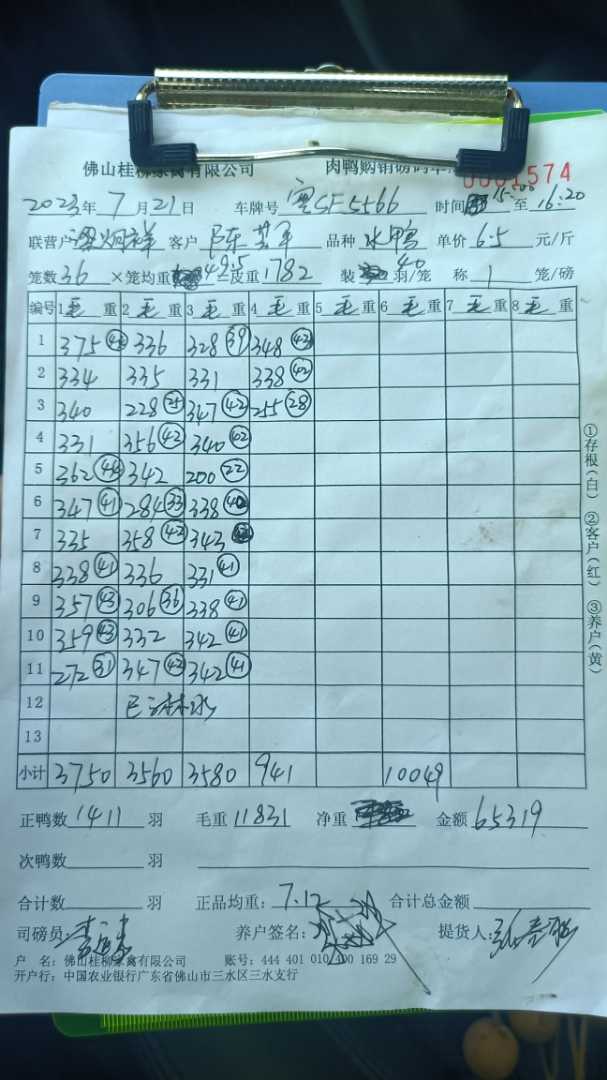 佛山桂柳家禽有限公司 肉鸭购销磅码单 0001574
2023年 7月21日 车牌号 粤SF5566 时间 15:00 至 16:20
联营户 梁炳祥 客户 陈 品种 水鸭 单价 6.5 元/斤
笼数 36 ×笼均重 49.5 =皮重 1782 装 40 羽/笼 称 1 笼/磅
编号 1 毛 重 2 毛 重 3 毛 重 4 毛 重 5 毛 重 6 毛 重 7 毛 重 8 毛 重
1 375 336 328 39 348 43
2 334 335 331 338 42
3 340 228 25 347 42 255 28
4 331 356 42 340 42
5 362 44 342 200 22
6 347 41 284 33 338 40
7 335 358 42 343
8 338 41 336 331 41
9 357 43 306 36 338 41
10 359 43 332 342 41
11 272 31 347 42 342 41
12 已淋水
13
小计 3750 3560 3580 941 10049
正鸭数 1411 羽 毛重 11831 净重 金额 65319
次鸭数 羽
合计数 羽 正品均重: 7.12 合计总金额
司磅员: 养户签名: 提货人:
户 名: 佛山桂柳家禽有限公司 账号: 444 401 010 400 169 29
开户行: 中国农业银行广东省佛山市三水区三水支行
①存根(白) ②客户(红) ③养户(黄)